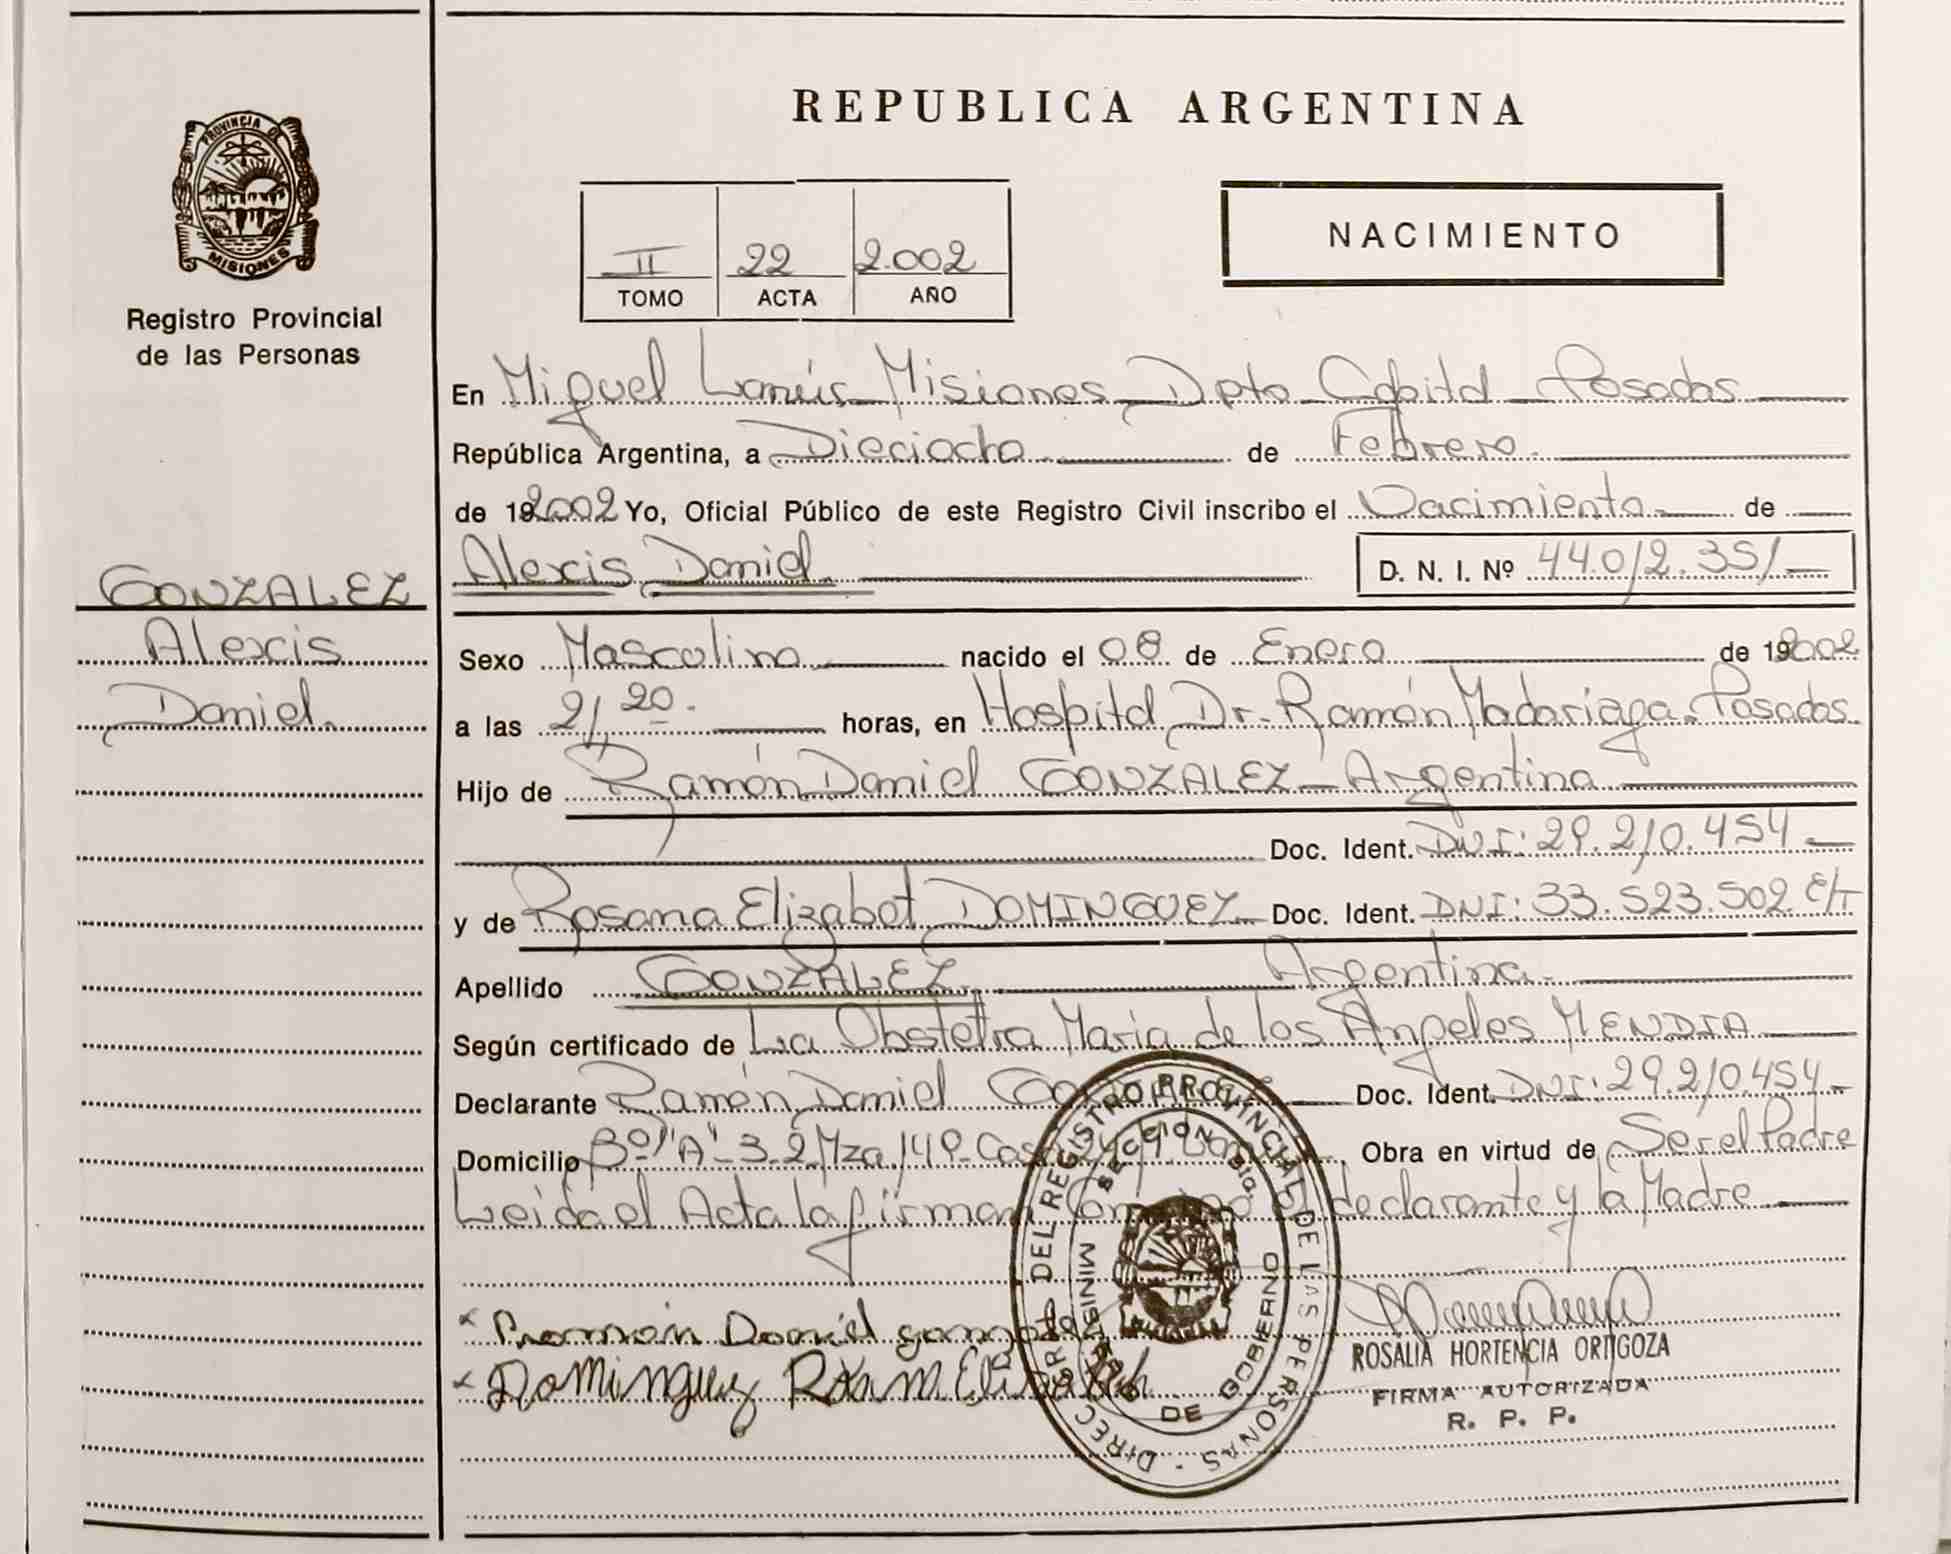 REPUBLICA ARGENTINA
PROVINCIA DE
MISIONES
Registro Provincial
de las Personas
II 22 2.002
TOMO ACTA AÑO
NACIMIENTO
En Miguel Lanús Misiones Dpto Capital Posadas
República Argentina, a Dieciocho de Febrero.
de 192002 Yo, Oficial Público de este Registro Civil inscribo el Nacimiento de
Alexis Daniel. D. N. I. Nº 44.012.351
GONZALEZ
Alexis
Daniel.
Sexo Masculino nacido el 08 de Enero de 192002
a las 21,20. horas, en Hospital Dr. Ramón Madariaga. Posadas.
Hijo de Ramón Daniel GONZALEZ - Argentina
Doc. Ident. DNI: 29.210.454
y de Rosana Elizabet DOMINGUEZ Doc. Ident. DNI: 33.523.502 E/T
Apellido GONZALEZ. Argentina.
Según certificado de La Obstetra Maria de los Angeles MENDIA
Declarante Ramón Daniel Doc. Ident. DNI: 29.210.454
Domicilio Bº "A"-3-2 Mza 149 Obra en virtud de Ser el Padre
Leida el Acta la firman declarante y la Madre
x Ramón Daniel
x Dominguez
ROSALIA HORTENCIA ORTIGOZA
FIRMA AUTORIZADA
R. P. P.
DEL REGISTRO PROVINCIAL DE LAS PERSONAS
DE GOBIERNO